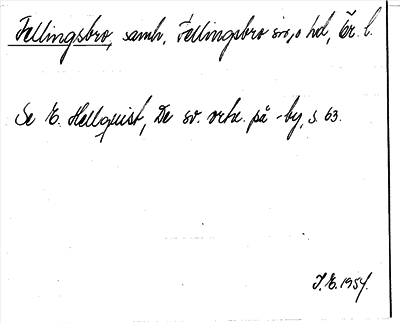 Fellingsbro, samh., Fellingsbro sn o hd, Ör. l.
Se E. Hellquist, De sv. ortn. på -by, s. 63.
J.E. 1954.